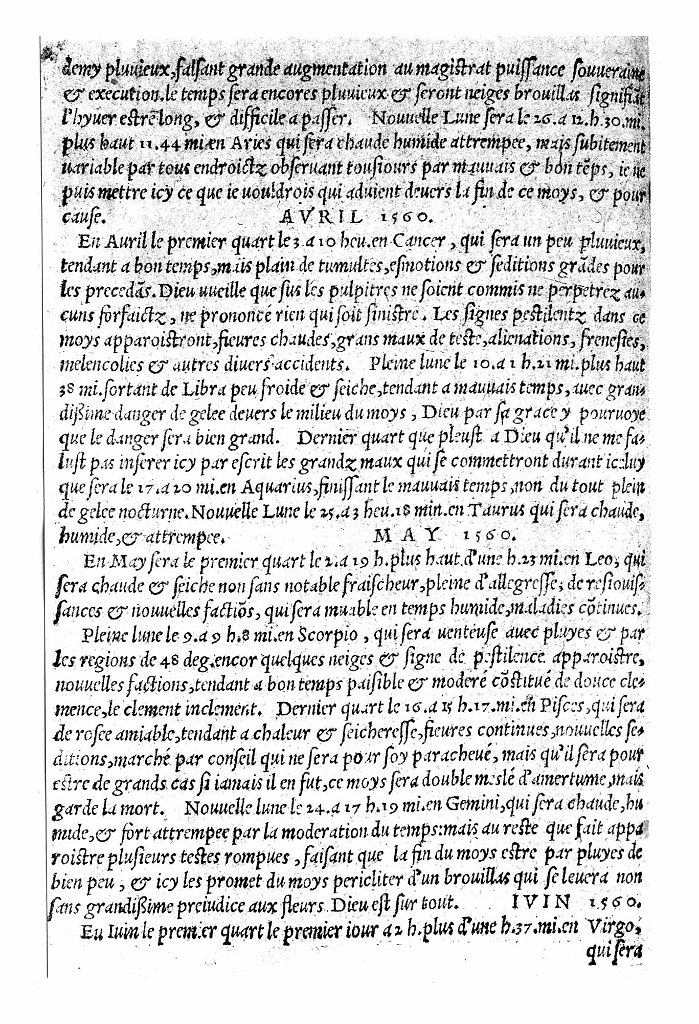 demy pluuieux, faisant grande augmentation au magistrat puissance souueraine
& execution. le temps sera encores pluuieux & seront neiges brouillas signifiāt
l'hyuer estre long, & difficile a passer. Nouuelle Lune sera le 26. a 12. h. 30. mi.
plus haut 11. 44 mi. en Aries qui sera chaude humide attrempee, mais subitement
variable par tous endroictz obseruant tousiours par mauuais & bon tēps, ie ne
puis mettre icy ce que ie vouldrois qui aduient deuers la fin de ce moys, & pour
cause. AVRIL 1560.
En Auril le premier quart le 3. a 10 heu. en Cancer, qui sera un peu pluuieux,
tendant a bon temps, mais plain de tumultes, esmotions & seditions grādes pour
les precedās. Dieu vueille que sus les pulpitres ne soient commis ne perpetrez au-
cuns forfaictz, ne prononcé rien qui soit sinistre. Les signes pestilentz dans ce
moys apparoistront, fieures chaudes, grans maux de teste, alienations, frenesies,
melencolies & autres diuers accidents. Pleine lune le 10. a 1 h. 21 mi. plus haut
38 mi. sortant de Libra peu froide & seiche, tendant a mauuais temps, auec gran-
dißime danger de gelee deuers le milieu du moys, Dieu par sa grace y pouruoye
que le danger sera bien grand. Dernier quart que pleust a Dieu qu'il ne me fa-
lust pas inserer icy par escrit les grandz maux qui se commettront durant iceluy
que sera le 17. a 20 mi. en Aquarius, finissant le mauuais temps, non du tout plein
de gelee nocturne. Nouuelle Lune le 25. a 3 heu. 18 min. en Taurus qui sera chaude,
humide, & attrempee. MAY 1560.
En May sera le premier quart le 2. a 19 h. plus haut d'une h. 23 mi. en Leo, qui
sera chaude & seiche non sans notable fraischeur, pleine d'allegresse, de resiouis-
sances & nouuelles factiōs, qui sera muable en temps humide, maladies cōtinues.
Pleine lune le 9. a 9 h. 8 mi. en Scorpio, qui sera venteuse auec pluyes & par
les regions de 48 deg. encor quelques neiges & signe de pestilence apparoistre,
nouuelles factions, tendant a bon temps paisible & moderé cōstitué de douce cle-
mence, le clement inclement. Dernier quart le 16. a 15 h. 17. mi. en Pisces, qui sera
de rosee amiable, tendant a chaleur & seicheresse, fieures continues, nouuelles se-
ditions, marché par conseil qui ne sera pour soy paracheué, mais qu'il sera pour
estre de grands cas si iamais il en fut, ce moys sera double meslé d'amertume, mais
garde la mort. Nouuelle lune le 24. a 17 h. 19 mi. en Gemini, qui sera chaude, hu
mide, & fort attrempee par la moderation du temps: mais au reste que fait appa
roistre plusieurs testes rompues, faisant que la fin du moys estre par pluyes de
bien peu, & icy les promet du moys pericliter d'un brouillas qui se leuera non
sans grandißime preiudice aux fleurs. Dieu est sur tout. IVIN 1560.
En Iuin le premier quart le premier iour a 2 h. plus d'une h. 37. mi. en Virgo,
qui sera